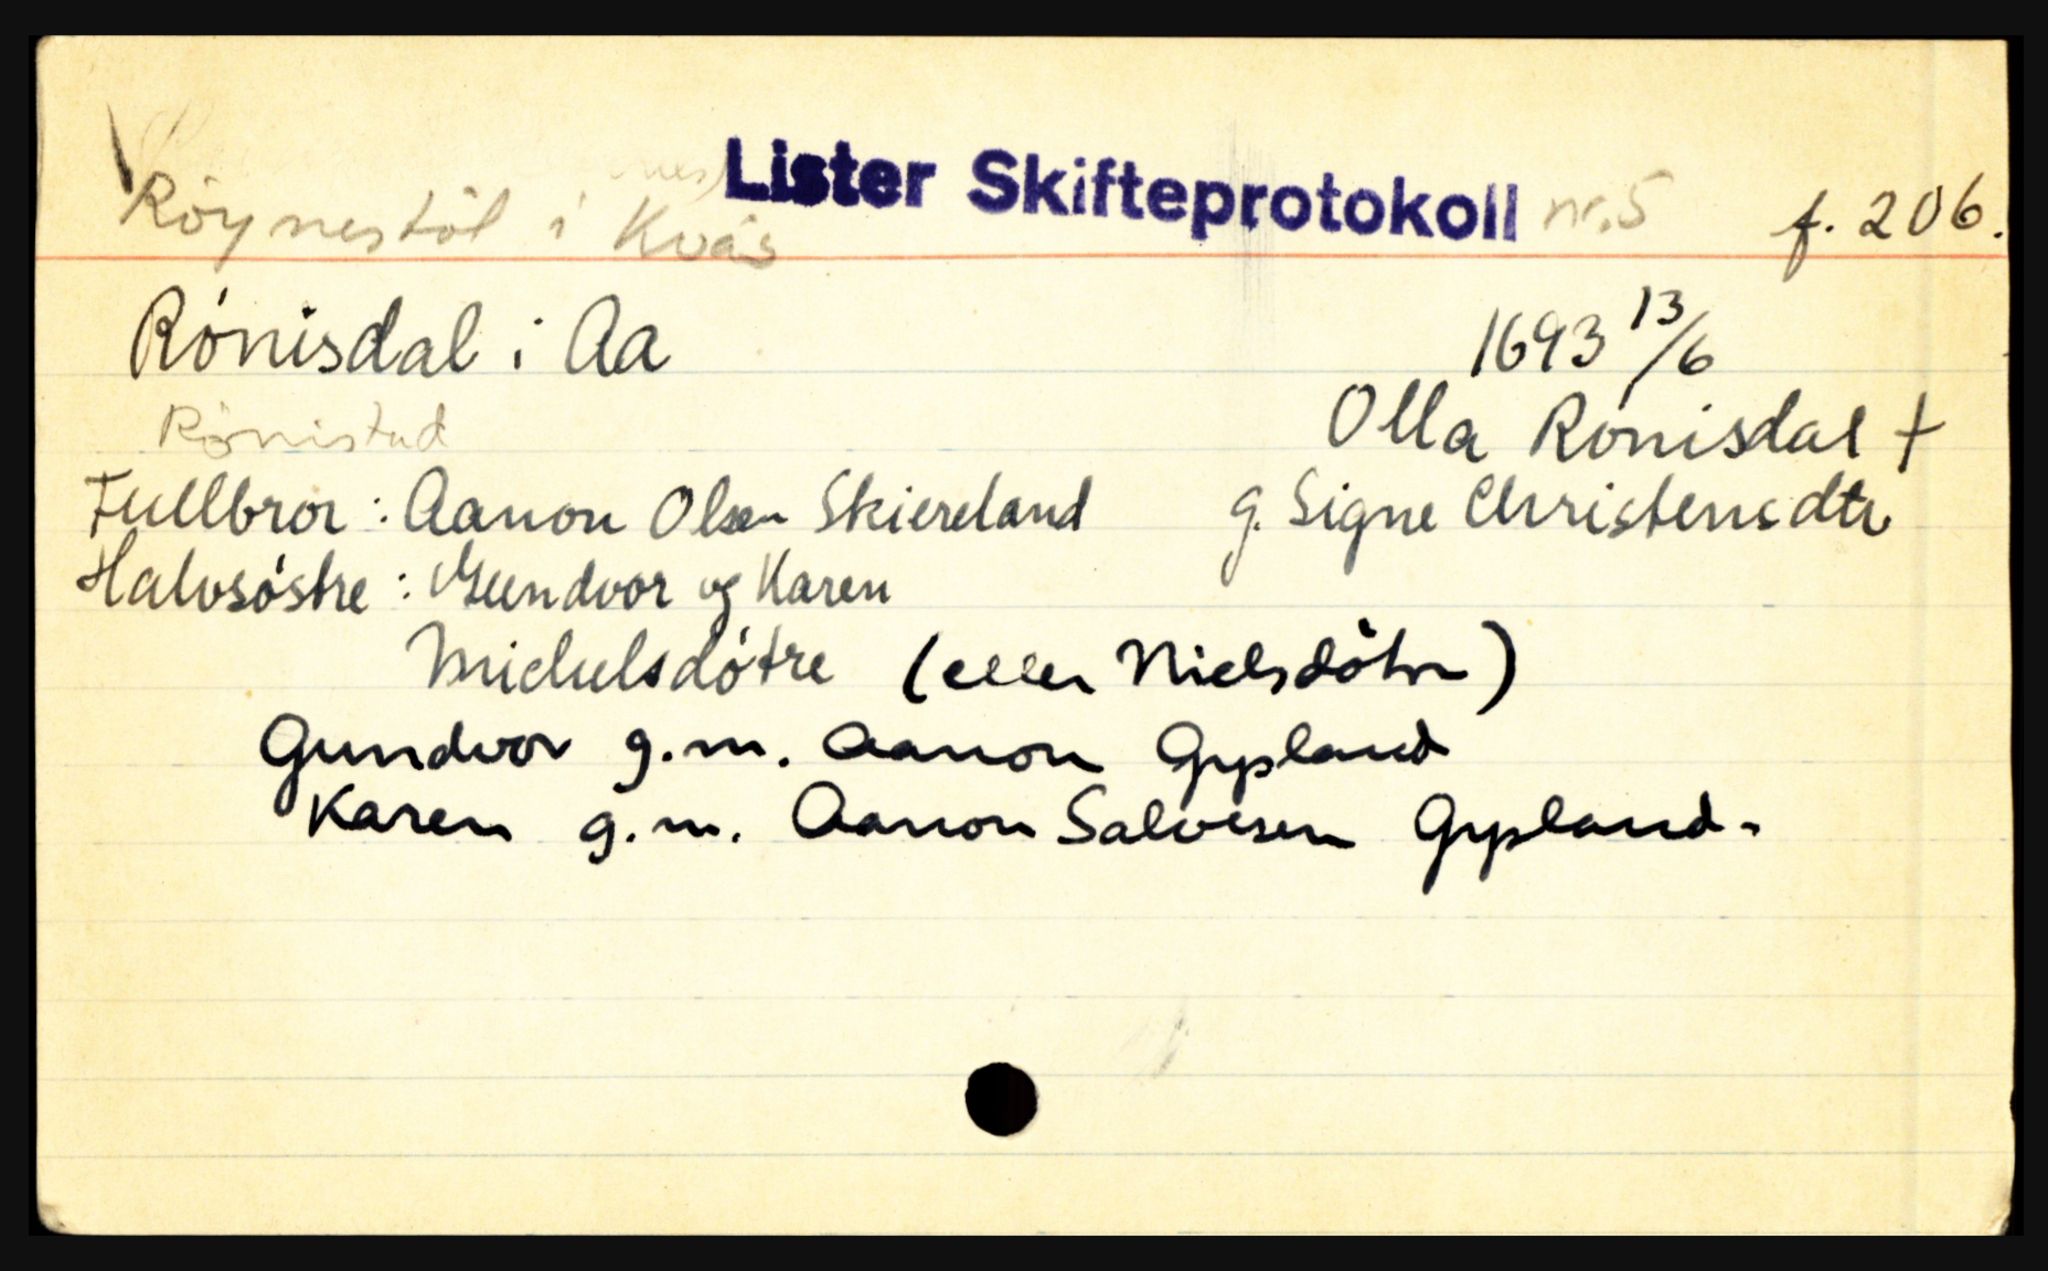 Lister Skifteprotokoll nr. 5 f. 206.
Røynestøl i Kvås
Rónisdal i Aa 1693 13/6
Rønistad Olla Ronisdal †
Fullbror : Aanon Olsen Skiereland g. Signe Christensdtr
Halvsóstre : Gundvor og Karen
Michelsdótre (eller Nielsdötre)
Gundvor g.m. Aanon Gypland
Karen g.m. Aanon Salvesen Gypland.